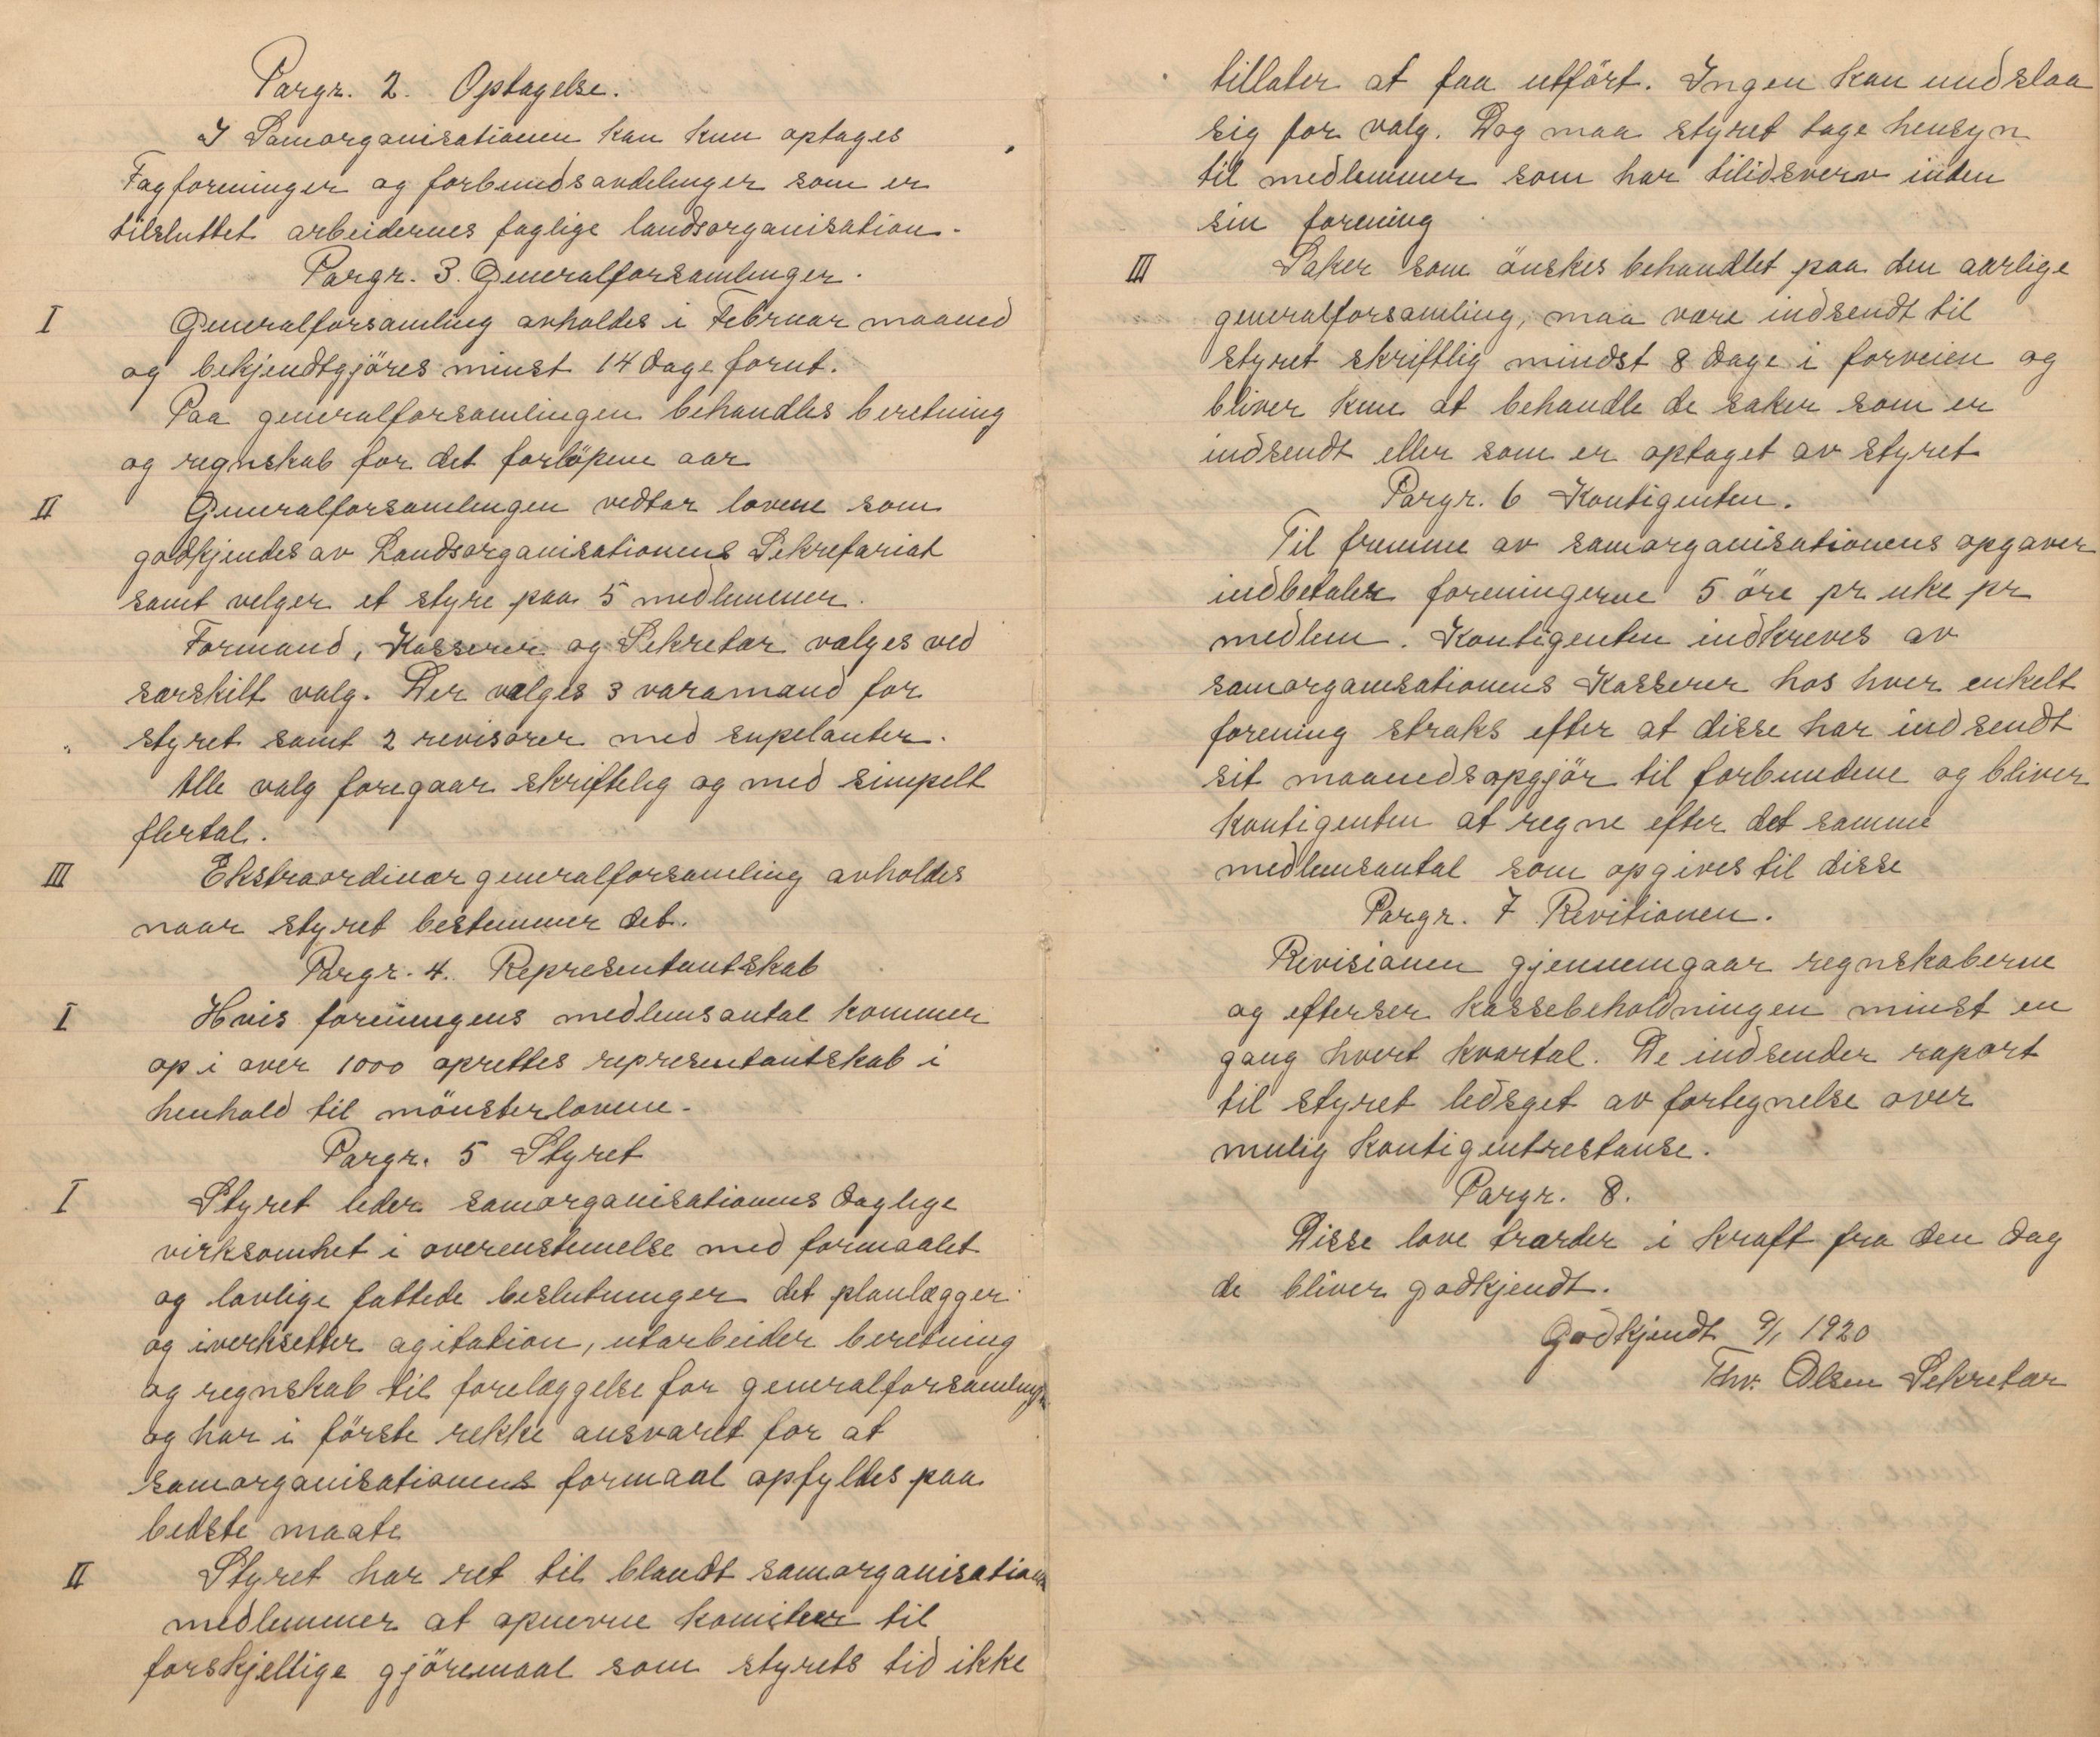 Pargr. 2. Optagelse.
I Samorganisationen kan kun optages
Fagforeninger og forbundsavdelinger som er
tilsluttet arbeidernes faglige landsorganisation.
Pargr. 3. Generalforsamlinger.
I Generalforsamling avholdes i Februar maaned
og bekjendtgjöres minst 14 dage forut.
Paa generalforsamlingen behandles beretning
og regnskab for det forlöpene aar
II Generalforsamlingen vedtar lovene som
godkjendes av Landsorganisationens Sekretariat
samt velger et styre paa 5 medlemmer.
Formand, Kasserer og Sekretær vælges ved
særskilt valg. Der vælges 3 varamænd for
styret samt 2 revisorer med supelanter.
Alle valg foregaar skriftelig og med simpelt
flertal.
III Ekstraordinær generalforsamling avholdes
naar styret bestemmer det.
Pargr. 4. Representantskab
I Hvis foreningens medlemsantal kommer
op i over 1000 oprettes representantskab i
henhold til mönsterlovene.
Pargr. 5 Styret
I Styret leder samorganisationens daglige
virksomhet i overenstemelse med formaalet
og lovlige fattede beslutninger det planlægger
og iverksetter agitation, utarbeider beretning
og regnskab til forelæggelse for generalforsamlingen
og har i förste rekke ansvaret for at
samorganisationens formaal opfyldes paa
bedste maate
II Styret har ret til blandt samorganisationens
medlemmer at opnevne komiteer til
forskjellige gjöremaal som styrets tid ikke
tillater at faa utfört. Ingen kan undslaa
sig for valg. Dog maa styret tage hensyn
til medlemmer som har tilidsverv inden
sin forening
III Saker som önskes behandlet paa den aarlige
generalforsamling, maa være indsendt til
styret skriftlig mindst 8 dage i forveien og
bliver kun at behandle de saker som er
indsendt eller som er optaget av styret
Pargr. 6 Kontigenten.
Til fremme av samorganisationens opgaver
indbetaler foreningerne 5 öre pr uke pr
medlem. Kontigenten indkreves av
samorganisationens Kasserer hos hver enkelt
forening straks efter at disse har indsendt
sit maanedsopgjör til forbundene og bliver
kontigenten at regne efter det samme
medlemsantal som opgives til disse
Pargr. 7 Revitionen.
Revisionen gjennemgaar regnskaberne
og efterser kassebeholdningen minst en
gang hvert kvartal. De indsender raport
til styret ledsget av fortegnelse over
mulig kontigentrestanse.
Pargr. 8.
Disse love træder i kraft fra den dag
de bliver godkjendt.
Godkjendt 9/1 1920
Thv. Olsen Sekretær